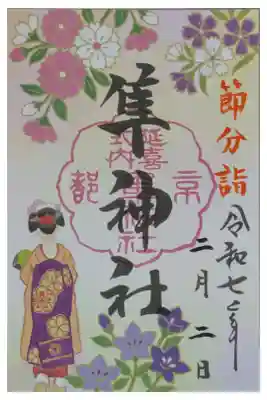 節分詣
令和七年
二月二日
隼神社
延喜
式内
京
都